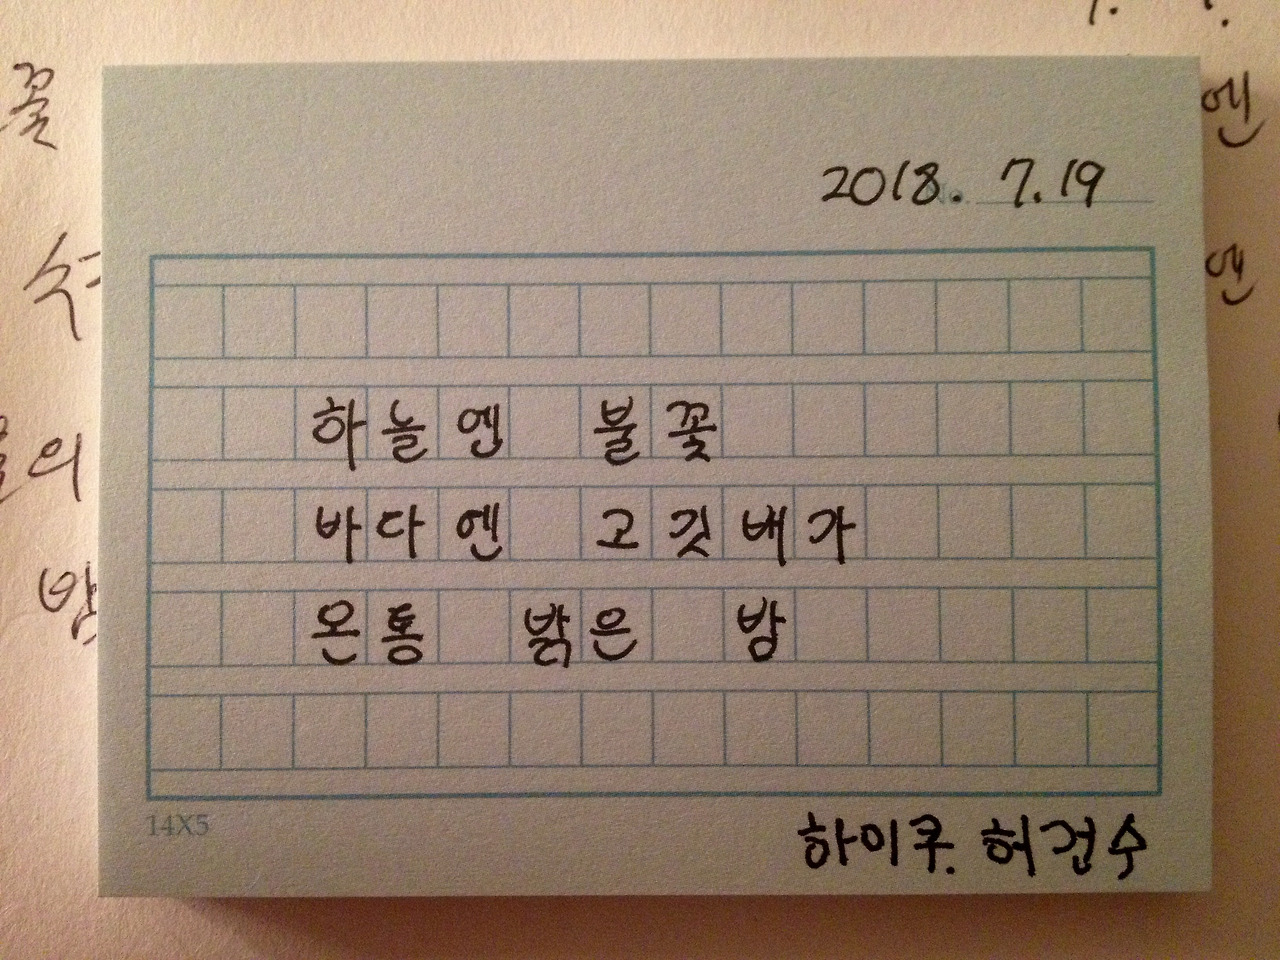 2018. 7.19
하늘엔 불꽃
바다엔 고깃배가
온통 밝은 밤
14X5
하이쿠. 허건수